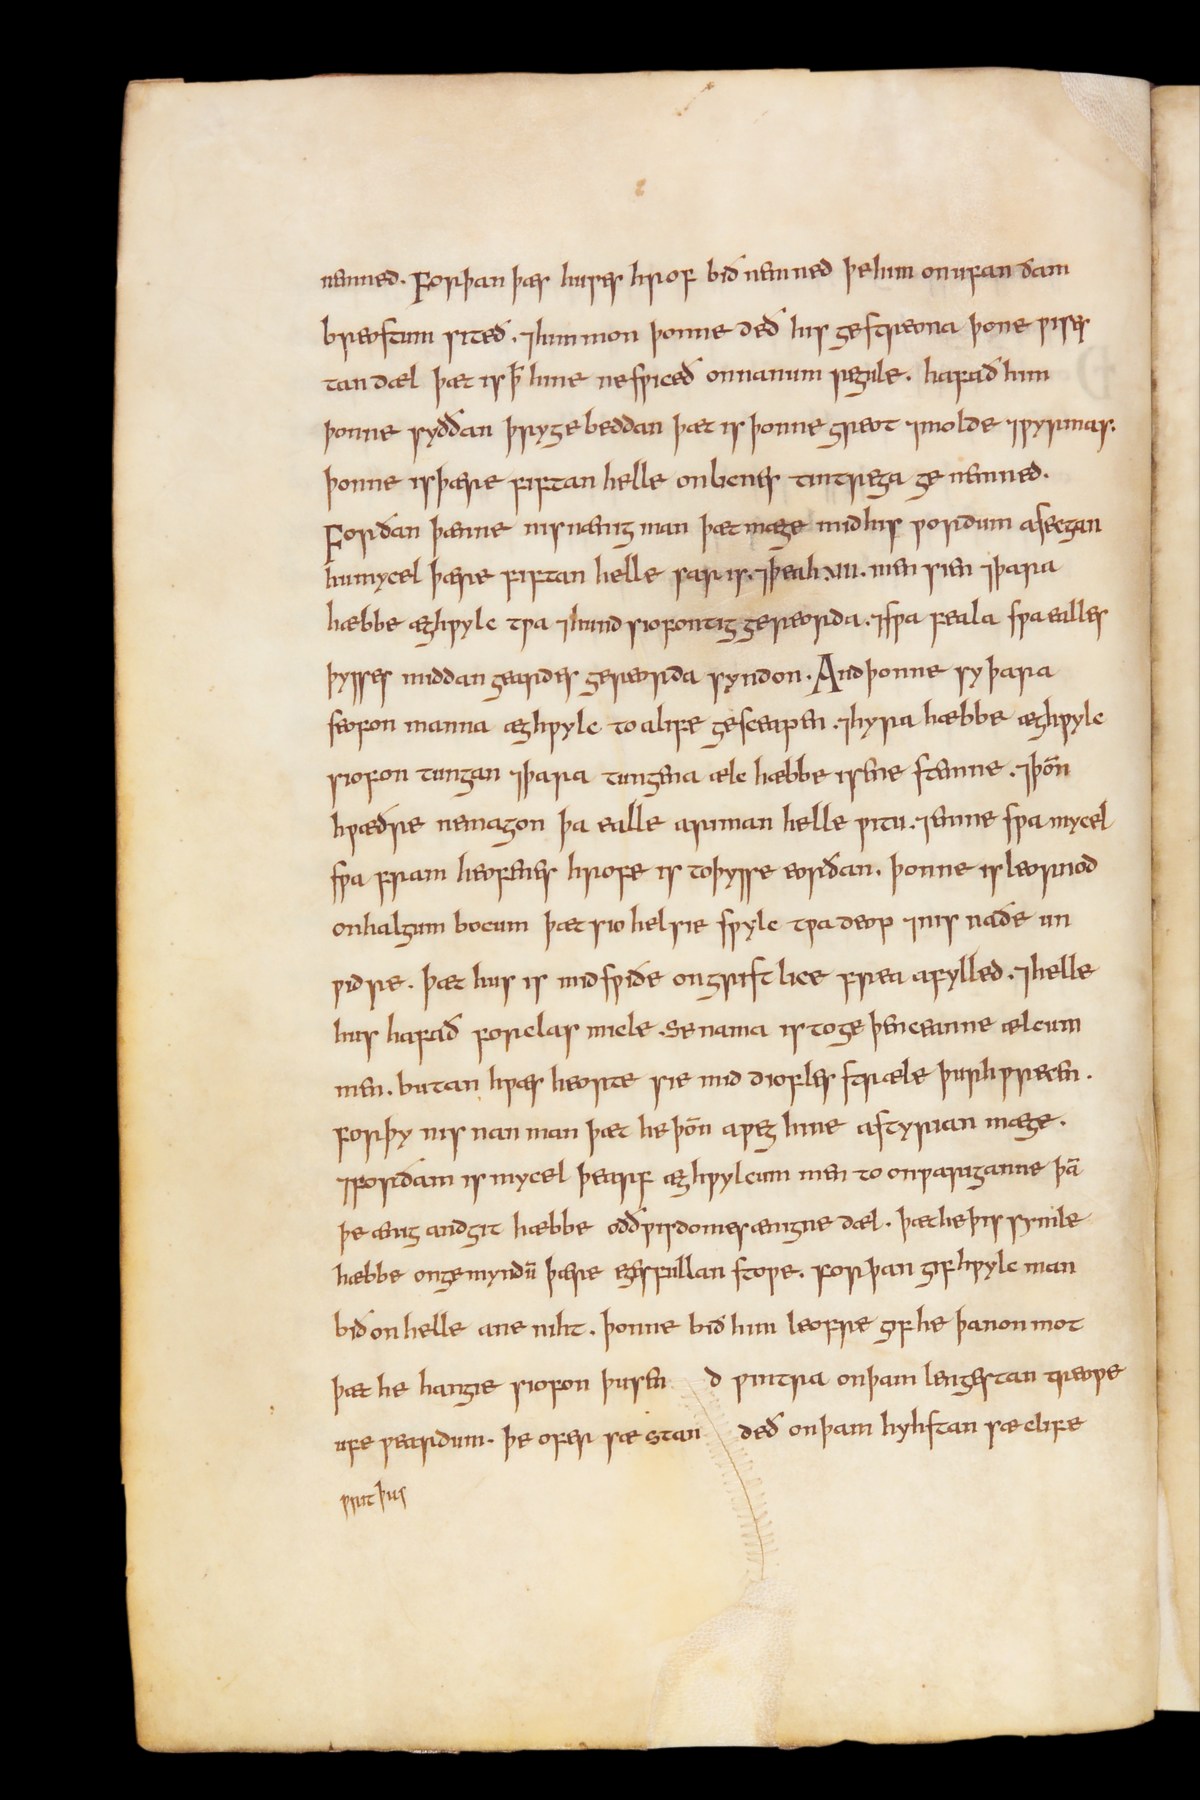 nemned. Forþan þæs huses hrof bið nemned þe him onufan ðam
breostum siteð. ⁊him mon þonne deð his gestreona þone wyrs
tan dæl þæt is þ̄ hine ne swiceð onnanum regule. hafað him
þonne syððan þry gebeddan þæt is þonne greot ⁊molde ⁊wyrmas.
þonne is þære fiftan helle onlicnes tintrega genemned.
Forðan þænne nis nænig man þæt mæge mid his wordum asecgan
hu mycel þære fiftan helle sar is. ⁊þeah .vii. men sien ⁊þara
hæbbe æghwylc twa ⁊hund siofontig gereorda. ⁊swa feala swa ealles
þysses middangeardes gereorda syndon. And þonne sy þara
seofon manna æghwylc to alife gesceapen. ⁊hyra hæbbe æghwylc
siofon tungan ⁊þara tungena ælc hæbbe isene stemne. ⁊þoñ
hwæðre ne magon þa ealle ariman helle witu. ⁊enne swa mycel
swa fram heofenes hrofe is to þysse eorðan. þonne is leornod
on halgum bocum þæt sio hel sie swylc twa deop ⁊nis naðe un
widre. þæt hus is mid swiðe ongristlice frea afylled. ⁊helle
hus hafað forclas micle. Se nama is to geþenceanne ælcum
men. butan hwæs heorte sie mid diofles stræle þurhwrecen.
forþy nis nan man þæt he þoñ aweg hine astyrian mæge.
⁊forðam is mycel þearf æghwylcum men to onwariganne þā
þe ænig andgit hæbbe oððe wisdomes ænigne dæl. þæt he þis symle
hæbbe on gemyndū þære egesfullan stowe. forþan gif hwylc man
bið on helle ane niht. þonne bið him leofre gif he þanon mot
þæt he hangie siofon þusen d wintra on þam lengestan treowe
ufe weardum. þe ofer sæ stan deð on þam hyhstan sæclife
writ þus